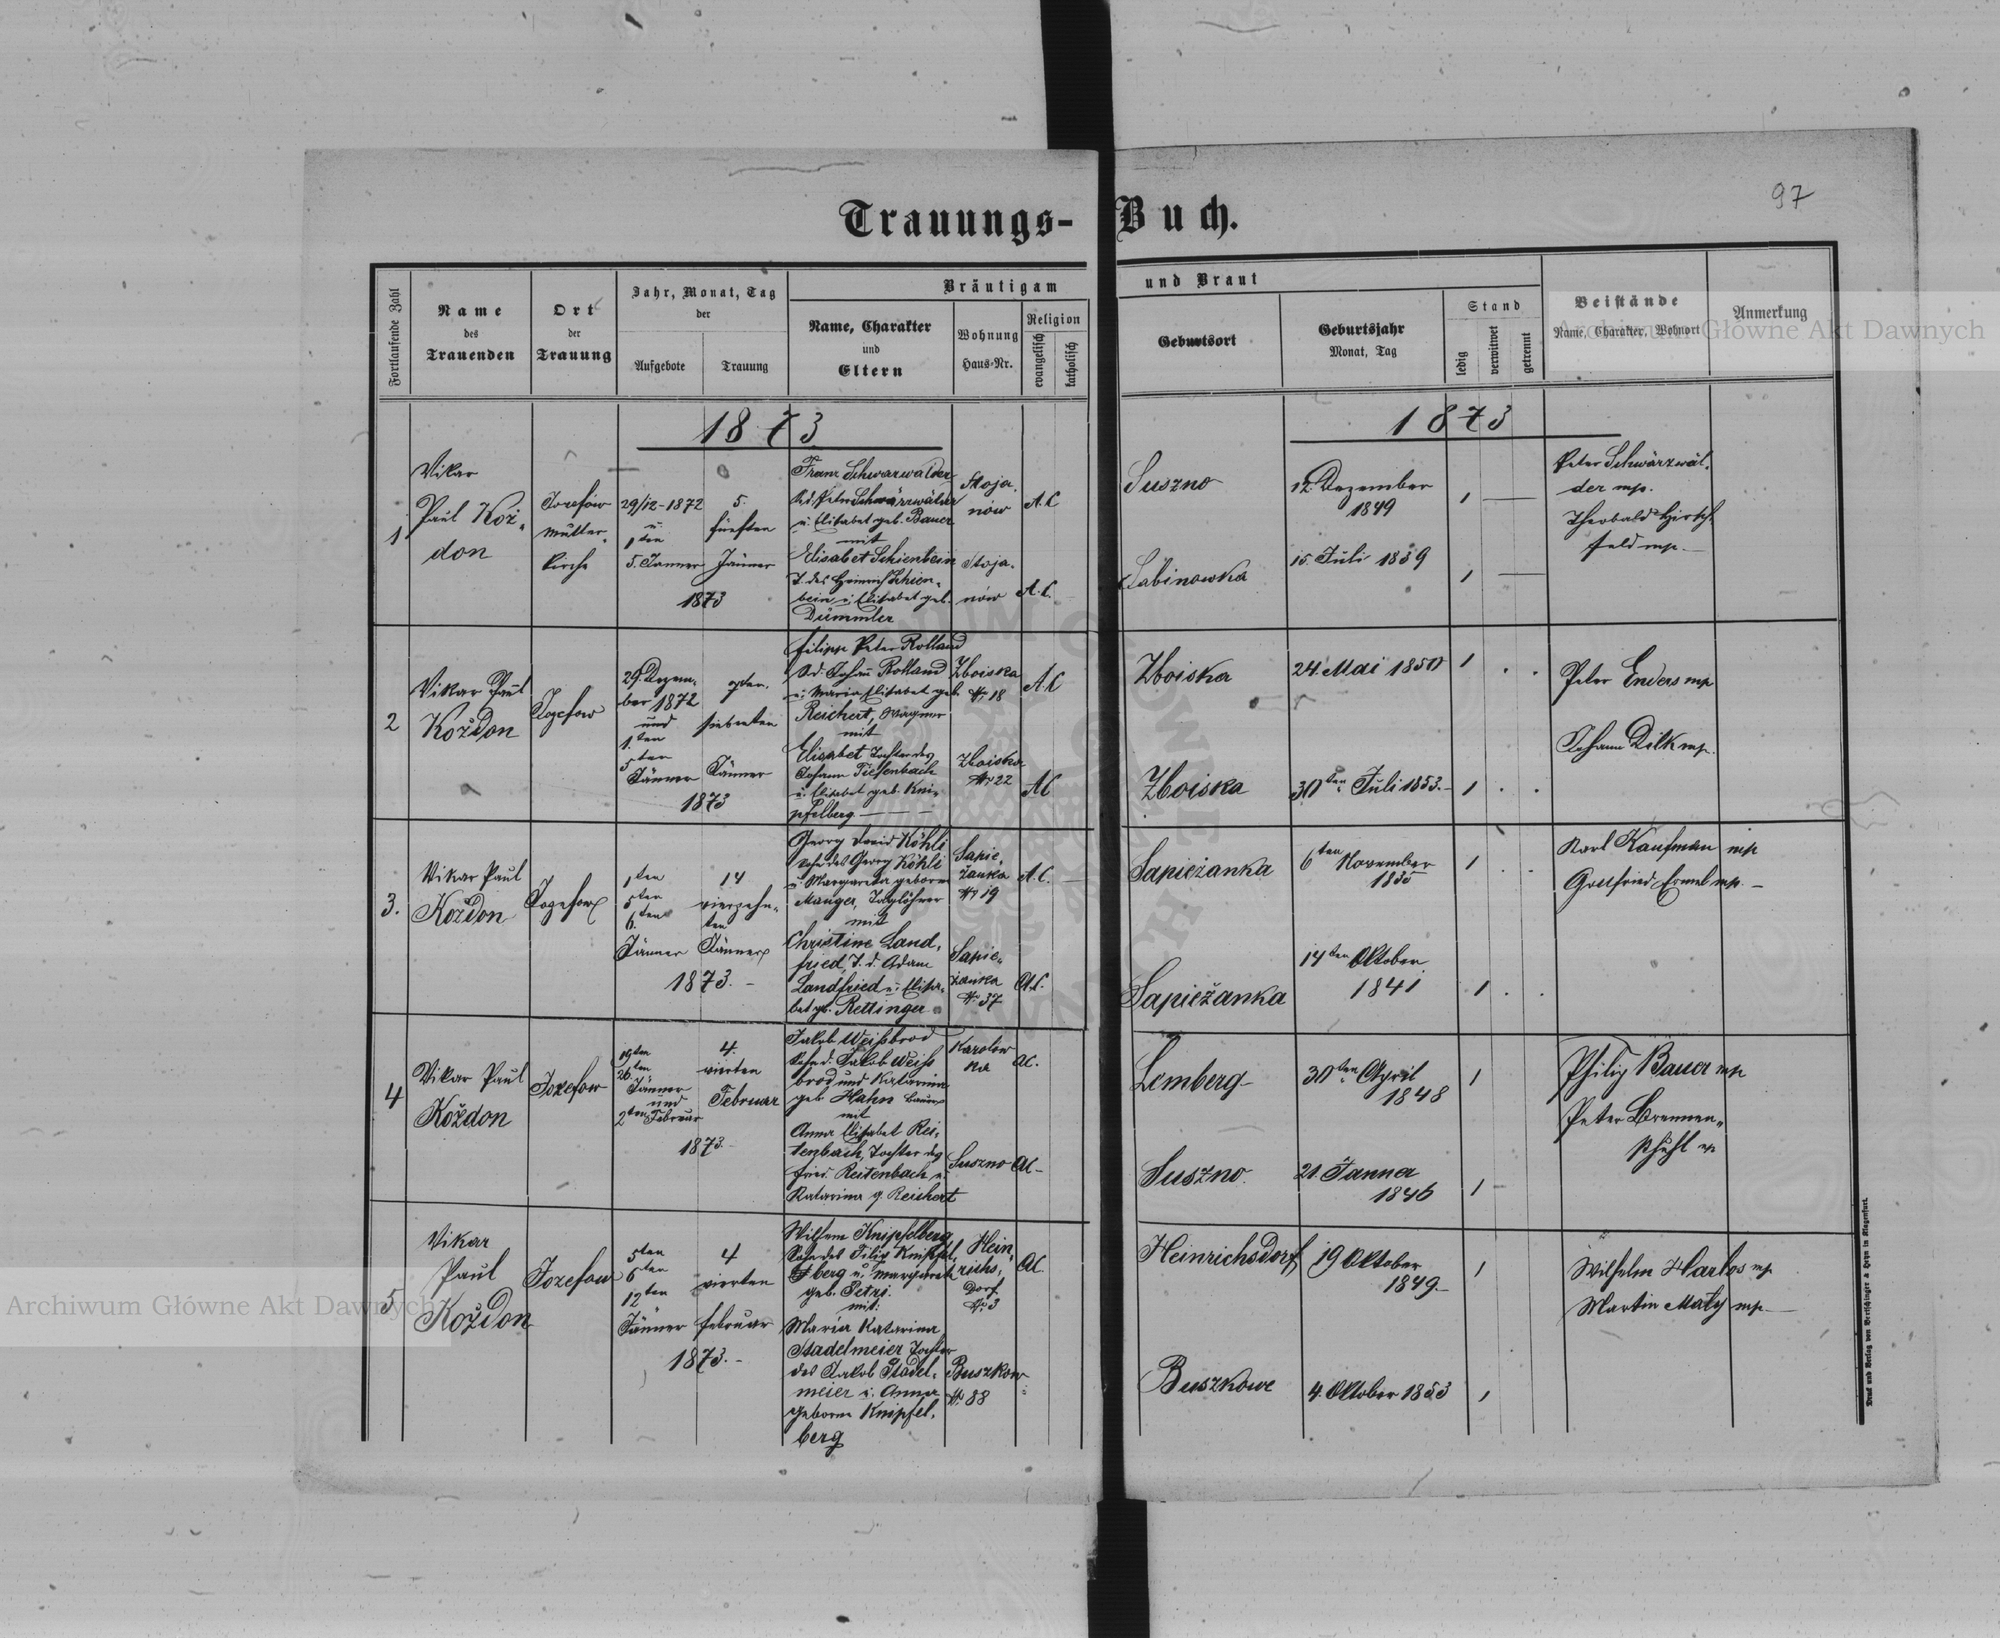 97
Trauungs-Buch.
Fortlaufende Zahl
Name
des
Trauenden
Ort
der
Trauung
Jahr, Monat, Tag
der
Aufgebote
Trauung
Bräutigam
Name, Charakter
und
Eltern
Wohnung
Haus-Nr.
Religion
evangelisch
katholisch
und Braut
Geburtsort
Geburtsjahr
Monat, Tag
Stand
ledig
verwitwet
getrennt
Beistände
Name, Charakter, Wohnort
Anmerkung
1873
1873
1
Vikar
Paul Kož-
don
Josefów
Mutter-
kirche
29/12-1872
u.
1ten
5. Jänner
5.
fünften
Jänner
1873
Franz Schwarzwälder
Sd. Peter Schwärzwälder
u. Elisabet geb. Bauer
mit
Elisabet Schienbein
T. des Heinrich Schien-
bein u. Elisabet geb.
Dümmler
Stoja-
now
A.C
Stoja-
nów
A.C.
Suszno
12. Dezember
1849
1
Sabinowka
15. Juli 1839
1
Peter Schwärzwäl-
der mp.
Theobald Hirsch-
feld mp.
2
Vikar Paul
Koždon
Jozefow
29. Dezem-
ber 1872
und
1.ten
5ten
Jänner
7ten
siebenten
Jänner
1873
Filipp Peter Rolland
Sd. Johann Rolland
u. Maria Elisabet geb.
Reichert, Wagner
mit
Elisabet Tochter des
Johann Tiefenbach
u. Elisabet geb. Kni-
pfelberg
Zboiska
Nr 18
A.C
Zboiska
Nr 22
A.C
Zboiska
24. Mai 1850
1
Zboiska
30ten Juli 1853.-
1
Peter Enders mp
Johann Dilk mp.
3.
Vikar Paul
Koždon
Jozefow
1ten
5ten
6.ten
Jänner
14
vierzehn-
ten
Jänner
1873.-
Georg David Köhli
Sohn des Georg Köhli
u. Margareta geborne
Manger, Taglöhner
mit
Christine Land-
fried, T. d. Adam
Landfried u. Elisa-
bet gb. Rettinger
Sapie-
żanka
Nr 19
A.C.
Sapie-
żanka
Nr 37
A.C.
Sapieżanka
6ten November
1835
1
Sapieżanka
14ten Oktober
1841
1
Karl Kaufman mp
Gottfried Ermel mp.-
4
Vikar Paul
Koždon
Jozefow
19ten
26.ten
Jänner
und
2ten Februar
4.
vierten
Februar
1873.-
Jakob Weißbrod
Sohn d. Jakob Weiß
brod und Katarina
geb. Hahn
mit
Anna Elisabet Rei-
tenbach, Tochter des
Fried. Reitenbach u.
Katarina g Reichert
Karolow
ka
AC.
Suszno
AC-
Lemberg
30ten April
1848
1
Suszno.
21. Janner
1846
1
Philip Bauer mp
Peter Brennen-
stuhl mp
5
Vikar
Paul
Koždon
Jozefow
5ten
6ten
12ten
Jänner
4
vierten
Februar
1873.-
Wilhelm Knipfelberg
Sohn des Filip Knipfel-
berg u. Margaret
geb. Petri.
mit:
Maria Katarina
Stadelmeier Tochter
des Jakob Stadel-
meier u. Anna
geborne Knipfel-
berg
Hein-
richs-
Dorf
Nr 3
AC.
Buszkow
Nr 88
Heinrichsdorf
19 Oktober
1849.-
1
Buszkowe
4. Oktober 1853
1
Wilhelm Harlos mp
Martin Maly mp.
Druck und Verlag von Bertschinger & Heyn in Klagenfurt.
Archiwum Główne Akt Dawnych
Archiwum Główne Akt Dawnych